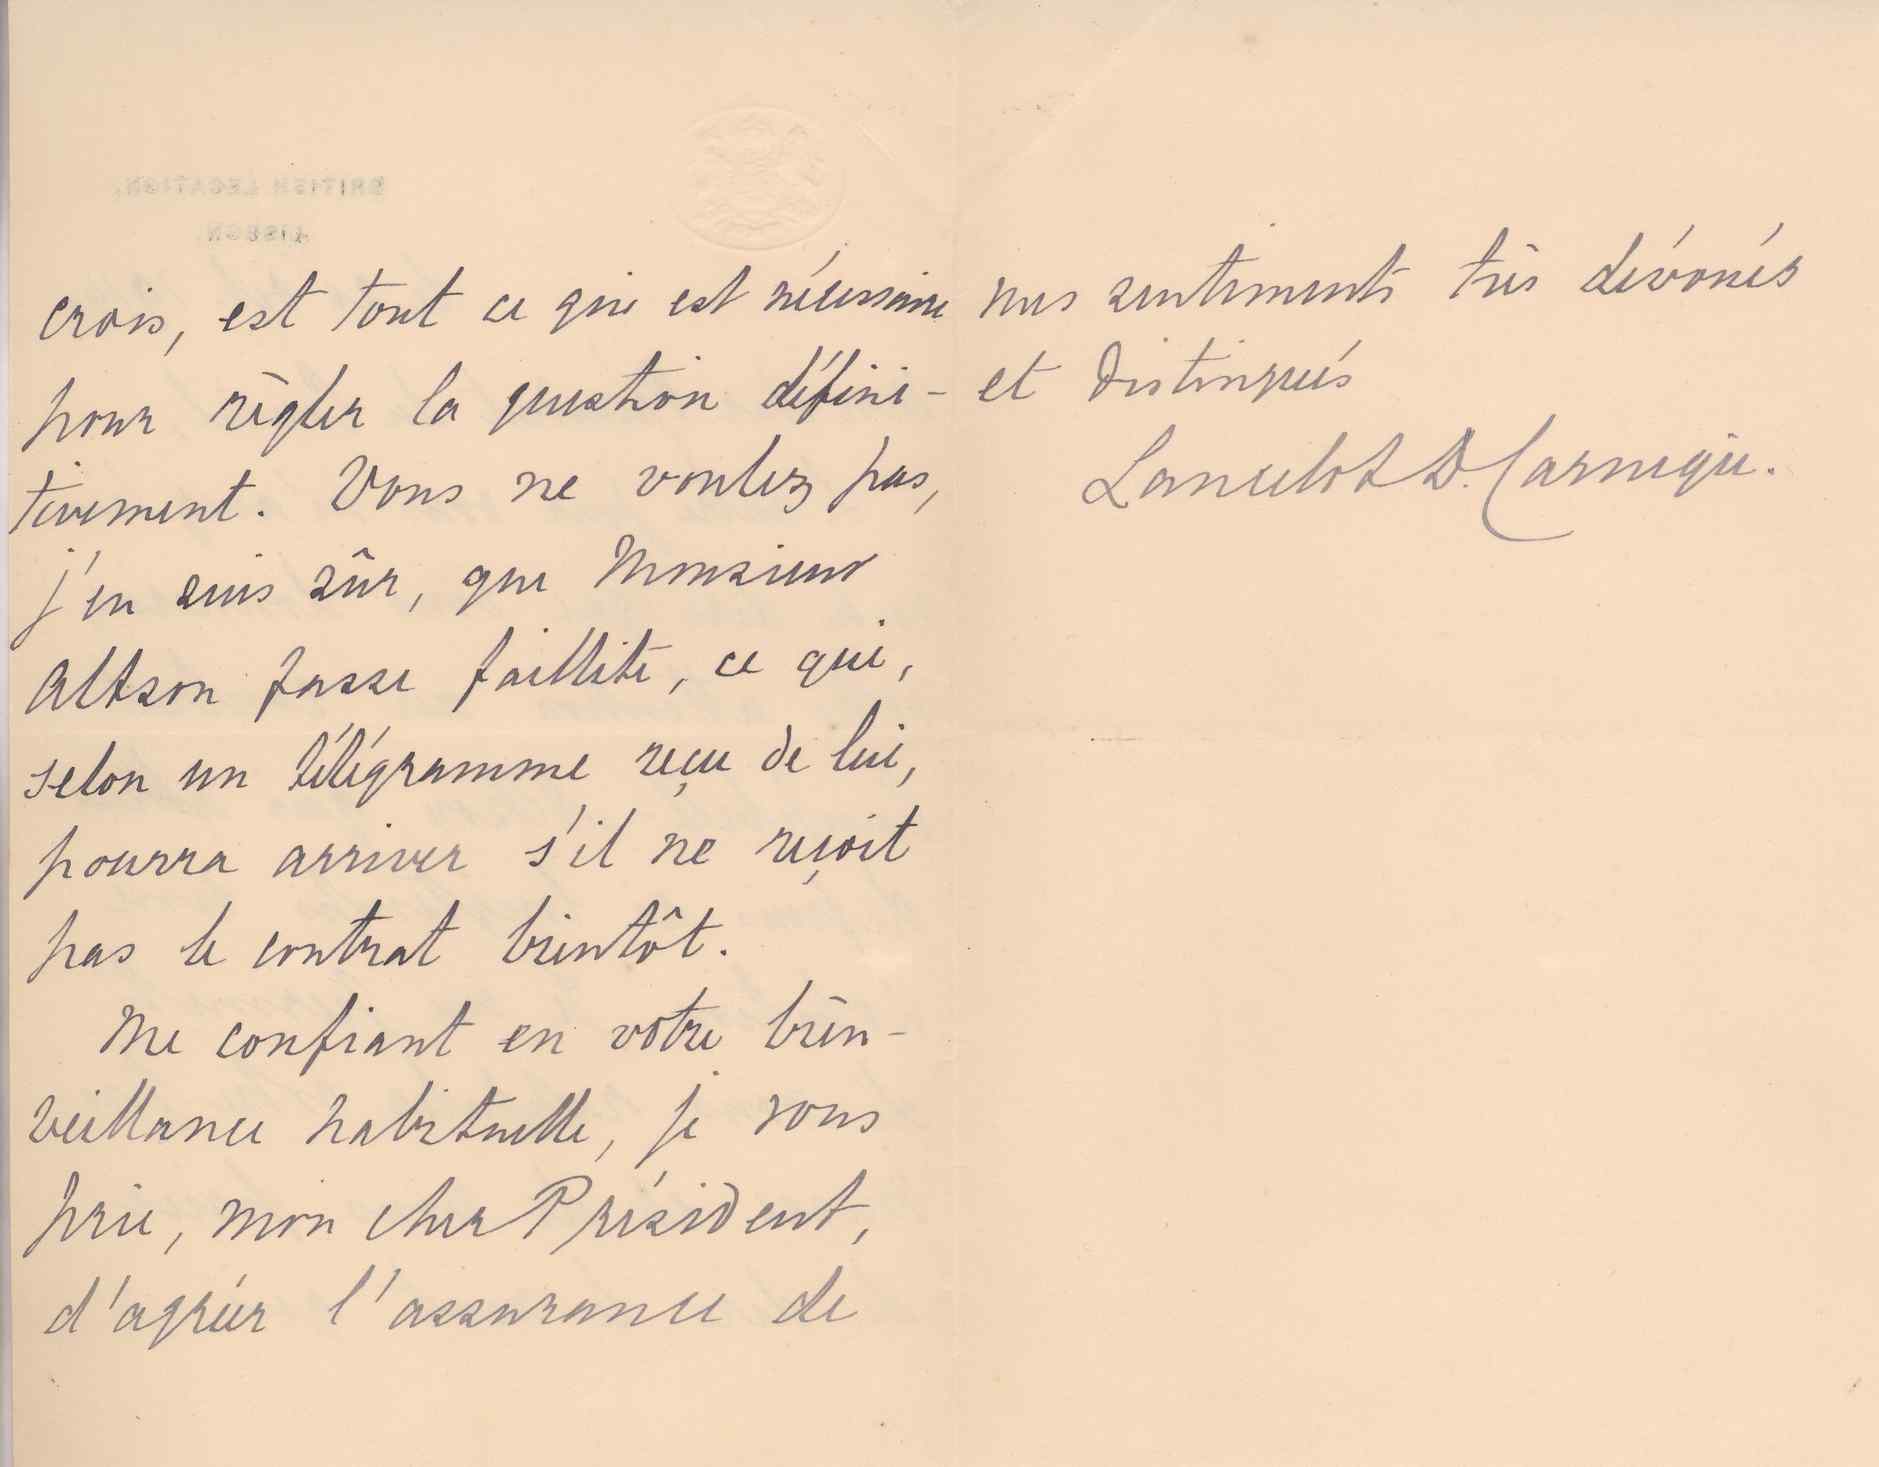 BRITISH LEGATION,
LISBON.
crois, est tout ce qui est nécessaire
pour règler la question défini-
tivement. Vous ne voulez pas,
j'en suis sûr, que Monsieur
Altson fasse faillite, ce qui,
selon un télégramme reçu de lui,
pourra arriver s'il ne reçoit
pas le contrat bientôt.
Me confiant en votre bien-
veillance habituelle, je vous
prie, mon cher Président,
d'agréer l'assurance de
mes sentiments très dévoués
et distingués
Lancelot D. Carnegie.